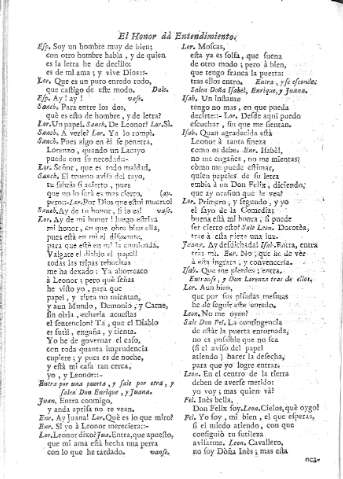 El Honor dà Entendimiento.
Esp. Soy un hombre muy de bien;
con otro hombre habla, y de quien
es la letra he de decillo:
es de mi ama; y vive Dios:-
Lor. Que es un puro enredo todo,
que castigo de este modo. Dale.
Esp. Ay! ay! vase.
Sanch. Para entre los dos,
què es esto de hombre, y de letra?
Lor. Un papel. Sanch. De Leonor? Lor. Sì.
Sanch. A verle? Lor. Yà lo rompì.
Sanch. Pues algo en èl se penetra,
Lorenzo, quando un Lacayo
Lor. Señor, que es todo maldad.
Sanch. El mismo
que no lo serà es mas cierto.
Lor. Por Dios que estoi muerto!
Sanch. Ay de tu honor, si lo es! vase.
Lor. Ay de mi honor! luego estriva
mi honor, en que obre bien ella,
pues està en mi el
para que estè en mi la
Valgate el diablo el papel!
todas las tripas rebueltas
me ha dexado: Ya ahorcàra
à Leonor; pero què señas
he visto yo, para que
papel, y
y aun Mundo, Demonio, y Carne,
sin oirla,
el sentencien? Ta, que el Diablo
es sutil, engaña, y tienta.
Yo he de governar el caso,
con toda quanta imprudencia
cupiere; y pues es de noche,
y està mi casa tan cerca,
yo, y Leonor:-
Entra por una puerta, y sale por otra, y
salen Don Enrique, y Juana.
Juan. Entra conmigo,
y anda aprisa no te vean.
Enr. Ay Juana! Lor. Què es lo que miro?
Enr. Si yo à Leonor mereciera:-
Lor. Leonor dixo? Jua. Entra, que apuesto,
que mi ama està hecha una perra
con lo que he tardado. vanse.
Lor. Moscas,
esta ya es soisa, que suena
de otro modo; pero à bien,
que tengo franca la puerta:
tras ellos entro. Entra, y se esconde:
Salen Doña Isabel, Enrique, y Juana.
Isab. Un instante
tengo no mas, en que pueda
deciros:- Lor. Desde aqui puedo
escuchar, sin que me sientan.
Isab. Quan agradecida està
Leonor à tanta fineza
como os debe. Enr. Isabèl,
no me engañes, no me mientas;
còmo me puede estimar,
quien papeles de su letra
embia à un Don Felix, diciendo,
que ay ocasion que le vea?
Lor. Primero, y segundo, y yo
el sayo de la Comedia:
buena està mi honra, si puede
ser cierto esto! Sale Leon. Dorotea,
trae à esta pieza una luz.
Juan. Ay desdichada! Isab. Entra, entra
tras mi. Enr. No; que he de vèr
à esta ingrata, y convencerla.
Isab. Que me pierdes: entra.
Entranse, y Don Lorenzo tras de ellos.
Lor. Aun bien,
que por sus pisadas mesmas
he de seguir
Leon. No me oyen?
Sale Don Fel. La contingencia
de estàr la puerta entornada,
no es possible que no sea
(si el aviso del papel
atiendo) hacer la desecha,
para que yo logre entrar.
Leon. En el centro de la tierra
deben de averse metido:
yo voy; mas quien và?
Fel. Inès bella,
Don Felix soy. Leon. Cielos, què oygo!
Fel. Yo soy, mi bien, el que esperas,
si el miedo atiendo, con que
configuiò tu sutileza
avisarme. Leon. Cavallero,
no soy Doña Inès; mas esta
nea-